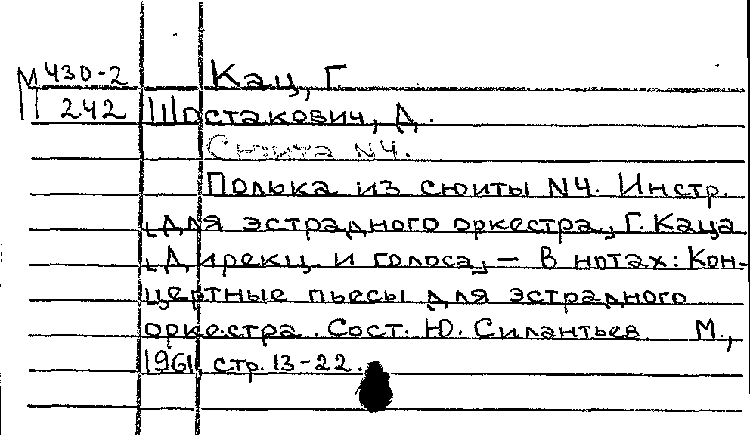 М 430-2 Кац, Г.
II 242 Шостакович, Д.
Сюита N4.
Полька из сюиты N4. Инстр.
[для эстрадного оркестра] Г. Каца
[Дирекц. и голоса] — В нотах: Кон-
цертные пьесы для эстрадного
оркестра. Сост. Ю. Силантьев М.,
1961, стр. 13-22.